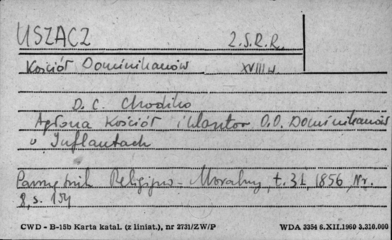 USZACZ Z.S.R.R.
Kościół Dominikanów XVIII w.
D. C. Chodźko
Agłona Kościół i klasztor O.O. Dominikanów
w Inflantach
Pamiętnik Religijno-Moralny, t. 31, 1856, Nr.
2, s. 134
CWD - B-15b Karta katal. (z liniat.), nr 2731/ZW/P WDA 3354 8.XII.1969 3.310.000